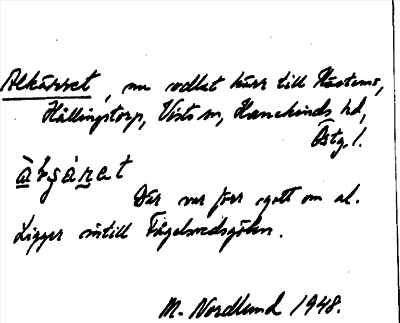 Alkärret, nu odlat kärr till Haetens,
Hällingstorp, Vists sn, Hanekinds hd,
Östg. l.
àlçáṟat
Där var förr gott om al.
Ligger intill Fågelvedsgölen.
M. Nordlund 1948.